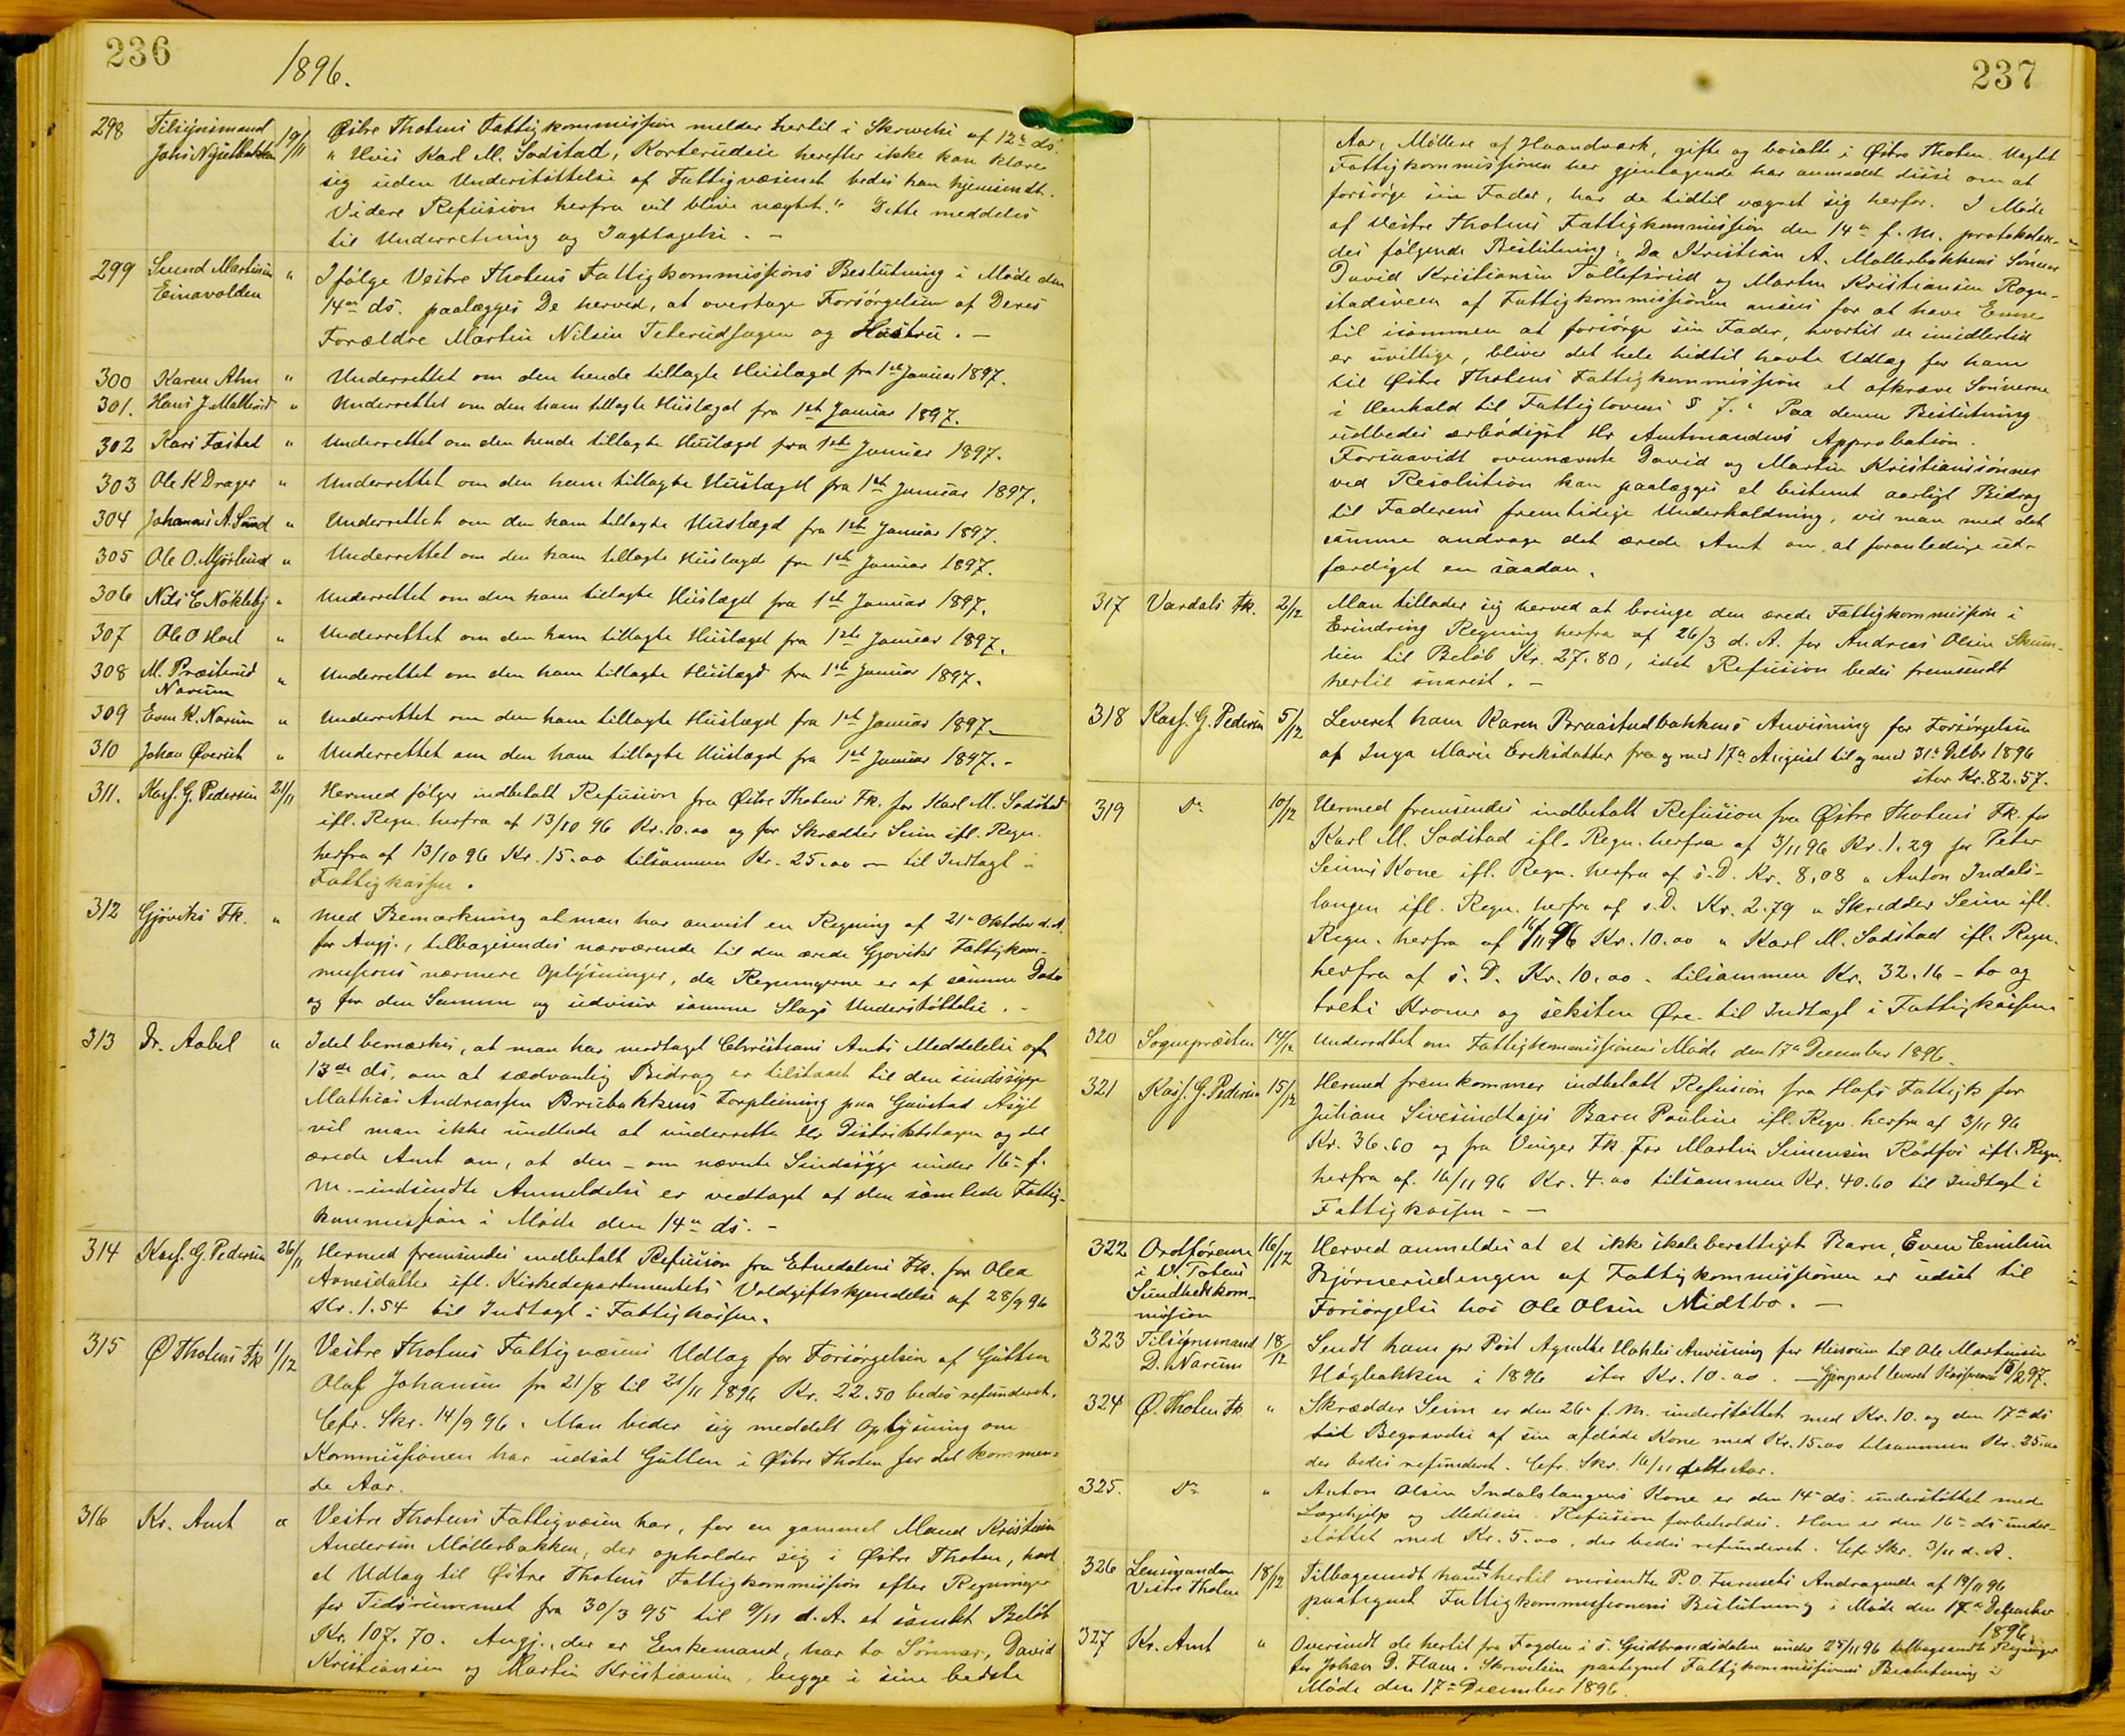 236
1896.
298 Tilsynsmand 19/11 Østre Thotens Fattigkommission melder hertil i Skrivelse af 12te ds.
Johs Nysetbakken "Hvis Karl M. Sodstad, Korterudeie herefter ikke kan klare
sig uden Understøttelse af Fattigvæsenet bedes han hjemsendt.
Videre Refusion herfra vil blive nægtet." Dette meddeles
til Underretning og Iagttagelse. -
299 Svend Martinsen " Ifølge Vestre Thotens Fattigkommissions Beslutning i Møde den
Einavolden 14de ds. paalægges De herved, at overtage Forsørgelsen af Deres
Forældre Martin Nilsen Teterudhagen og Hustru. -
300 Karen Alm " Underrettet om den hende tillagte Huslægd fra 1ste Januar 1897.
301. Hans J. Mallerud " Underrettet om den ham tillagte Huslægd fra 1st Januar 1897.
302 Kari Fæstad " Underrettet om den hende tillagte Huslægd fra 1ste Januar 1897.
303 Ole K Drager " Underrettet om den ham tillagte Huslægd fra 1st Januar 1897.
304 Johannes A. Sund " Underrettet om den ham tillagte Huslægd fra 1ste Januar 1897.
305 Ole O. Mjørlund " Underrettet om den ham tillagte Huslægd fra 1ste Januar 1897.
306 Nils E Nøkleby " Underrettet om den ham tillagte Huslægd fra 1st Januar 1897.
307 Ole O Hoel " Underrettet om den ham tillagte Huslægd fra 1ste Januar 1897.
308 M. Præsterud " Underrettet om den ham tillagte Huslægd fra 1ste Januar 1897.
Narum
309 Even K. Narum " Underrettet om den ham tillagte Huslægd fra 1st Januar 1897.
310 Johan Øverset " Underrettet om den ham tillagte Huslægd fra 1st Januar 1897. -
311. Kasf. G. Pedersen 21/11 Hermed følger indbetalt Refusion fra Østre Thotens Fk. for Karl M. Sodstad
ifl. Regn. herfra af 13/10 96 Kr. 10.00 og for Skrædder Seim ifl. Regn.
herfra af 13/10 96 Kr. 15.00 tilsammen Kr. 25.00 - til Indtægt i
Fattigkassen.
312 Gjøviks Fk. " Med Bemærkning at man har anvist en Regning af 21de Oktober d. A.
for Angj., tilbagesendes nærværende til den ærede Gjøviks Fattigkom-
missions nærmere Oplysninger, da Regningerne er af samme Dato
og for den Samme og udviser samme Slags Understøttelse. -
313 Dr. Aabel " Idet bemærkes, at man har modtaget Christians Amts Meddelelse af
13de ds. om at sædvanlig Bidrag er tilstaaet til den sindssyge
Mathias Andreassen Brubakkens Forpleining paa Gaustad Asyl
vil man ikke undlade at underrette Hr Distriktslægen og det
ærede Amt om, at den - om nævnte Sindssyge under 16de f.
M. - indsendte Anmeldelse er vedtaget af den samlede Fattig-
kommission i Møde den 14de ds. -
314 Kasf. G. Pedersen 26/11 Hermed fremsendes indbetalt Refusion fra Etnedalens Fk. for Olea
Arnesdatter ifl. Kirkedepartementets Voldgiftskjendelse af 28/9 96
Kr. 1.54 til Indtægt i Fattigkassen.
315 Ø Thotens Fk 1/12 Vestre Thotens Fattigvæsens Udlæg for Forsørgelsen af Gutten
Olaf Johansen fra 21/8 til 21/11 1896 Kr. 22.50 bedes refunderet.
Cfr. Skr. 14/9 96. Man beder sig meddelt Oplysning om
Kommissionen har udsat Gutten i Østre Thoten for det kommen-
de Aar.
316 Kr. Amt " Vestre Thotens Fattigvæsen har, for en gammel Mand Kristian
Andersen Møllerbakken, der opholder sig i Østre Thoten, havt
et Udlæg til Østre Thotens Fattigkommission efter Regninger
for Tidsrummet fra 30/3 95 til 9/11 d. A. et samlet Beløb
Kr. 107.70. Angj., der er Enkemand, har to Sønner, David
Kristiansen og Martin Kristiansen, begge i sine bedste
237
Aar, Møllere af Haandværk, gifte og bosatte i Østre Thoten. Uagtet
Fattigkommissionen her gjentagende har anmodet disse om at
forsørge sin Fader, har de hidtil vægret sig herfor. I Møde
af Vestre Thotens Fattigkommission den 14de f. M. protokoller-
des følgende Beslutning: "Da Kristian A. Møllerbakkens Sønner
David Kristiansen Tollefsrud og Martin Kristiansen Rogn-
stadsveen af Fattigkommissionen ansees for at have Evne
til isammen at forsørge sin Fader, hvortil de imidlertid
er uvillige, bliver det hele hidtil havte Udlæg for ham
til Østre Thotens Fattigkommission at afkræve Sønnerne
i Henhold til Fattiglovens § 7." Paa denne Beslutning
udbedes ærbødigst Hr Amtmandens Approbation.
Forsaavidt ovennævnte David og Martin Kristianssønner
ved Resolution kan paalægges et bestemt aarligt Bidrag
til Faderens fremtidige Underholdning, vil man med det
samme andrage det ærede Amt om, at foranledige ud-
færdiget en saadan.
317 Vardals Fk. 2/12 Man tillader sig herved at bringe den ærede Fattigkommission i
Erindring Regning herfra af 26/3 d. A. for Andreas Olsen Skum-
lien til Beløb Kr. 27.80, idet Refusion bedes fremsendt
hertil snarest. -
318 Kasf. G. Pedersen 5/12 Leveret ham Karen Braastadbakkens Anvisning for Forsørgelsen
af Inga Marie Eriksdatter fra og med 17de August til og med 31te Deebr 1896
stor Kr. 82.57.
319 Do 10/12 Hermed fremsendes indbetalt Refusion fra Østre Thotens Fk. for
Karl M. Sodstad ifl. Regn. herfra af 3/11 96 Kr. 1.29 for Peter
Seims Kone ifl. Regn. herfra af s. D. Kr. 8.08 " Anton Indals-
langen ifl. Regn. herfra af s. D. Kr. 2.79 " Skrædder Seim ifl.
Regn. herfra af 16/11 96 Kr. 10.00 " Karl M. Sodstad ifl. Regn.
herfra af s. D. Kr. 10.00 - tilsammen Kr. 32.16 - to og
treti Kroner og seksten Øre - til Indtægt i Fattigkassen
320 Sognepræsten 14/12 Underrettet om Fattigkommissionens Møde den 17de December 1896.
321 Kasf. G. Pedersen 15/12 Hermed fremkommer indbetalt Refusion fra Hofs Fattigk for
Juliane Sivesindtajes Barn Pauline ifl. Regn. herfra af 3/11 96
Kr. 36.60 og fra Vinger Fk. for Martin Simensen Rødfos ifl. Regn.
herfra af 16/11 96 Kr. 4.00 tilsammen Kr. 40.60 til Indtægt i
Fattigkassen - -
322 Ordføreren 16/12 Herved anmeldes at et ikke skoleberettiget Barn, Even Emilsen
i V. Totens Bjørnerudengen af Fattigkommissionen er udsat til
Sundhedskom- Forsørgelse hos Ole Olsen Midtbo. -
mission
323 Tilsynsmand 18/12 Sendt ham pr Post Agnethe Hohles Anvisning for Husrum til Ole Martinsen
D. Narum Høgbakken i 1896 stor Kr. 10.00. - Gjenpart leveret Kassereren 15/2 97.
324 Ø. Thoten Fk. " Skrædder Seim er den 26de f. M. understøttet med Kr. 10. og den 17de ds
ved Begravelse af sin afdøde Kone med Kr. 15.00 tilsammen Kr. 25.00
der bedes refunderet. Cfr. Skr. 16/11 dette Aar.
325. Do " Anton Olsen Indalslangens Kone er den 14de ds. understøttet med
Lægehjelp og Medicin. Refusion forbeholdes. Han er den 16de ds under-
støttet med Kr. 5.00, der bedes refunderet. Cfr Skr. 3/11 d. A.
326 Lensmanden 18/12 Tilbagesendt ham det hertil oversendte P. O. Furusets Andragende af 19/11 96
Vestre Thoten paategnet Fattigkommissionens Beslutning i Møde den 17de December
1896.
327 Kr. Amt " Oversendt de hertil fra Fogden i s. Gudbrandsdalen under 25/11 96 tilbagesendte Regninger
for Johan D. Flam. Skrivelsen paategnet Fattigkommissionens Beslutning i
Møde den 17de December 1896.